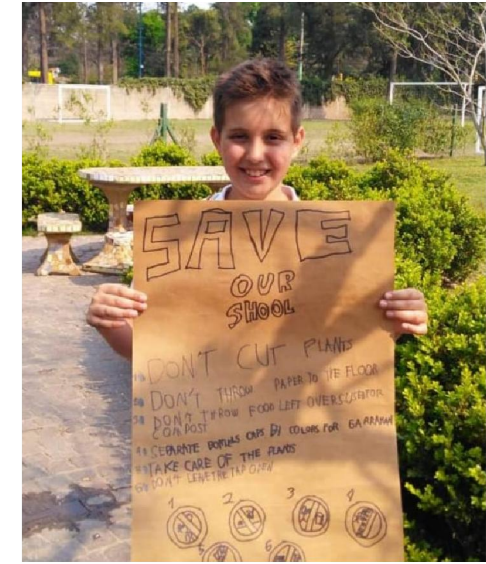 SAVE
OUR
SHOOL
1) DON'T CUT PLANTS
2) DON'T THROW PAPER TO THE FLOOR
3) DON'T THROW FOOD LEFT OVERS USED FOR
COMPOST
4) SEPARATE CAPS BY COLORS FOR GARRAHAN
5) TAKE CARE OF THE PLANTS
6) DON'T LEAVE THE TAP OPEN
1 2 3 4
5 6